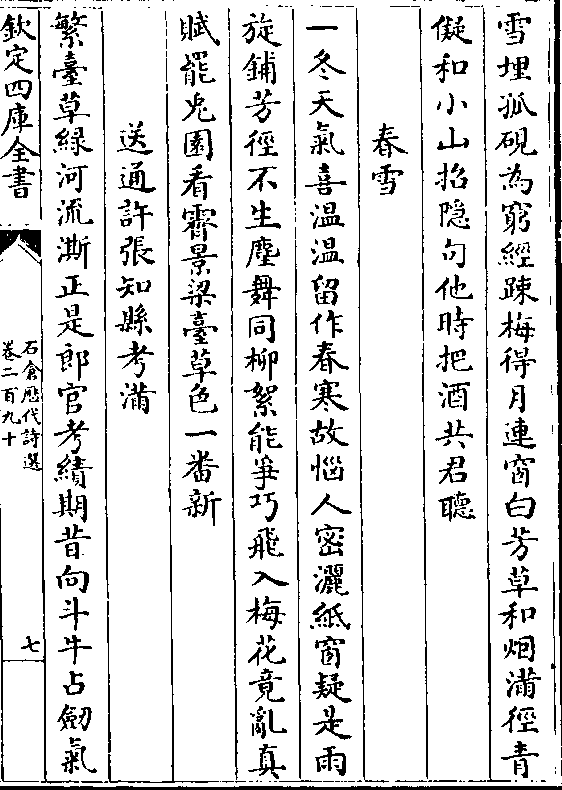 雪埋孤硯為窮經踈梅得月連窗白芳草和烟滿徑青
儗和小山招隐句他時把酒共君聽
春雪
一冬天氣喜溫溫留作春寒故惱人密灑紙窗疑是雨
旋鋪芳徑不生塵舞同柳絮能爭巧飛入梅花竟亂真
賦罷兔園看霽景梁臺草色一番新
送通許張知縣考滿
繁臺草緑河流澌正是郎官考績期昔向斗牛占劒氣
欽定四庫全書
石倉厯代詩選
卷二百九十
七